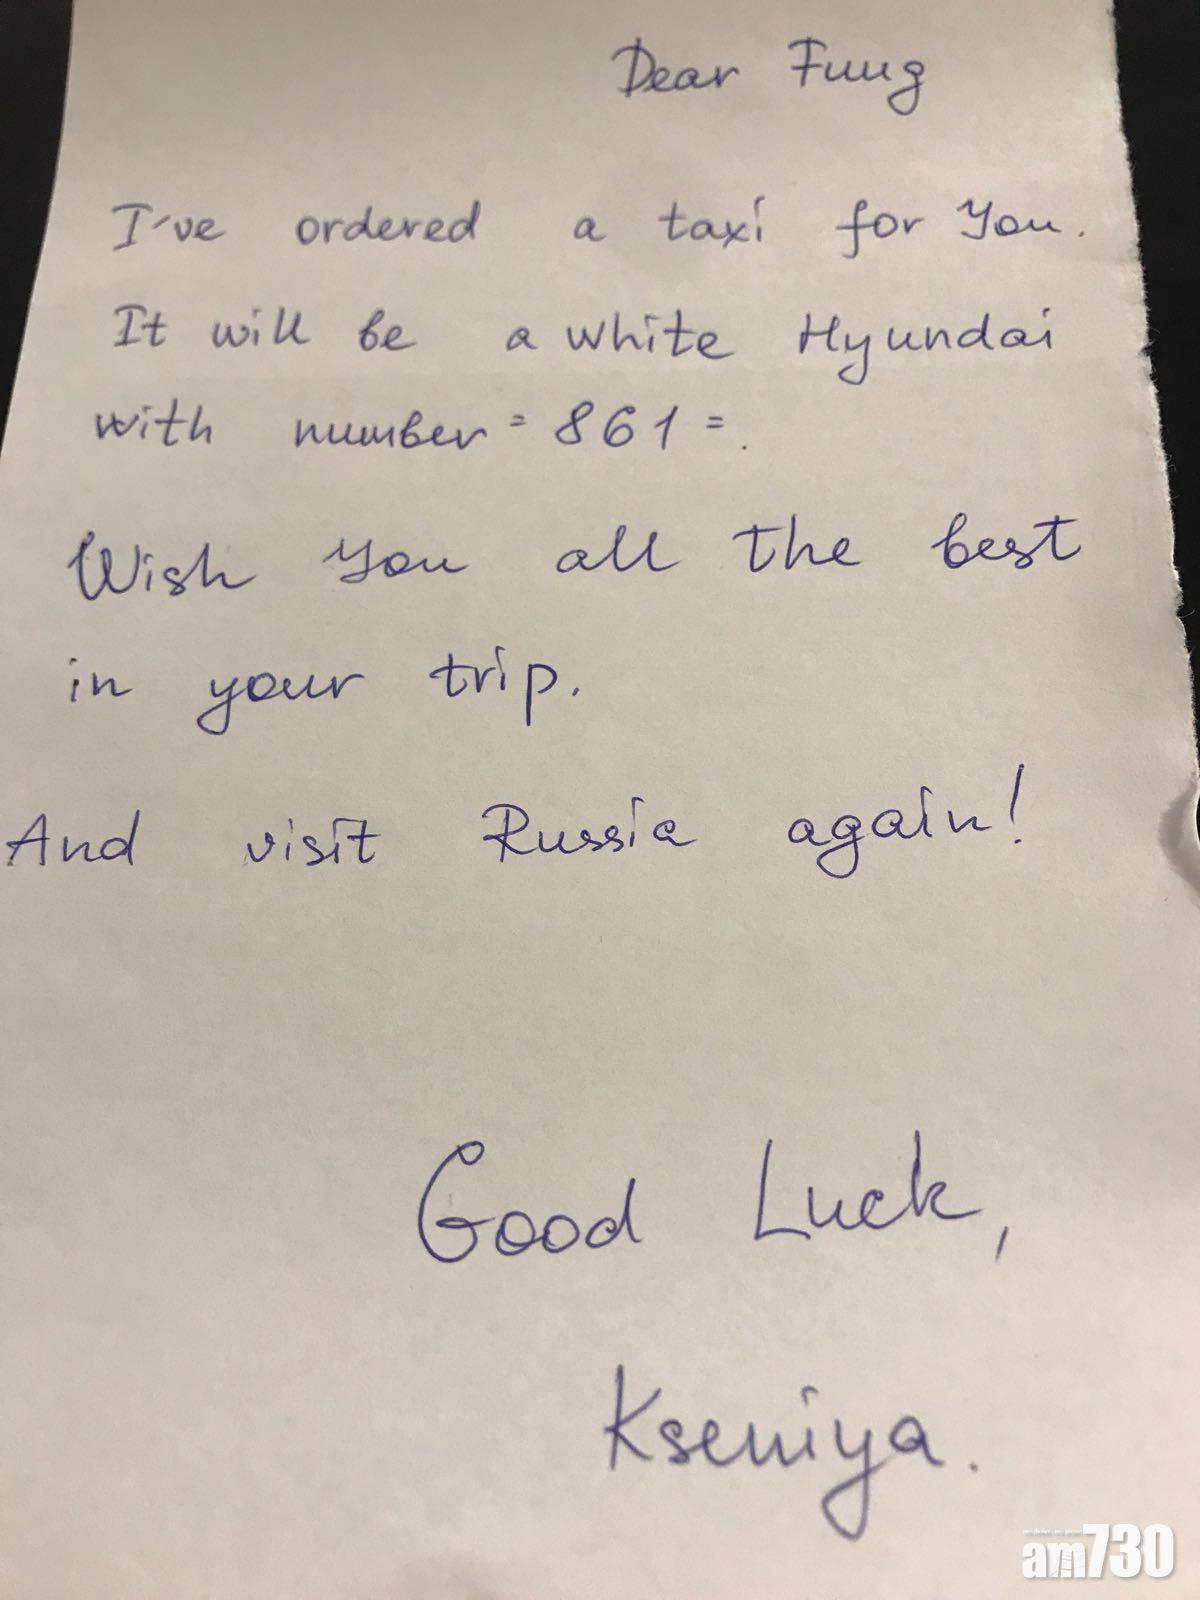 Dear Fung
I've ordered a taxi for You.
It will be a white Hyundai
with number = 861 =.
Wish You all the best
in your trip.
And visit Russia again!
Good Luck,
Kseniya.
am730